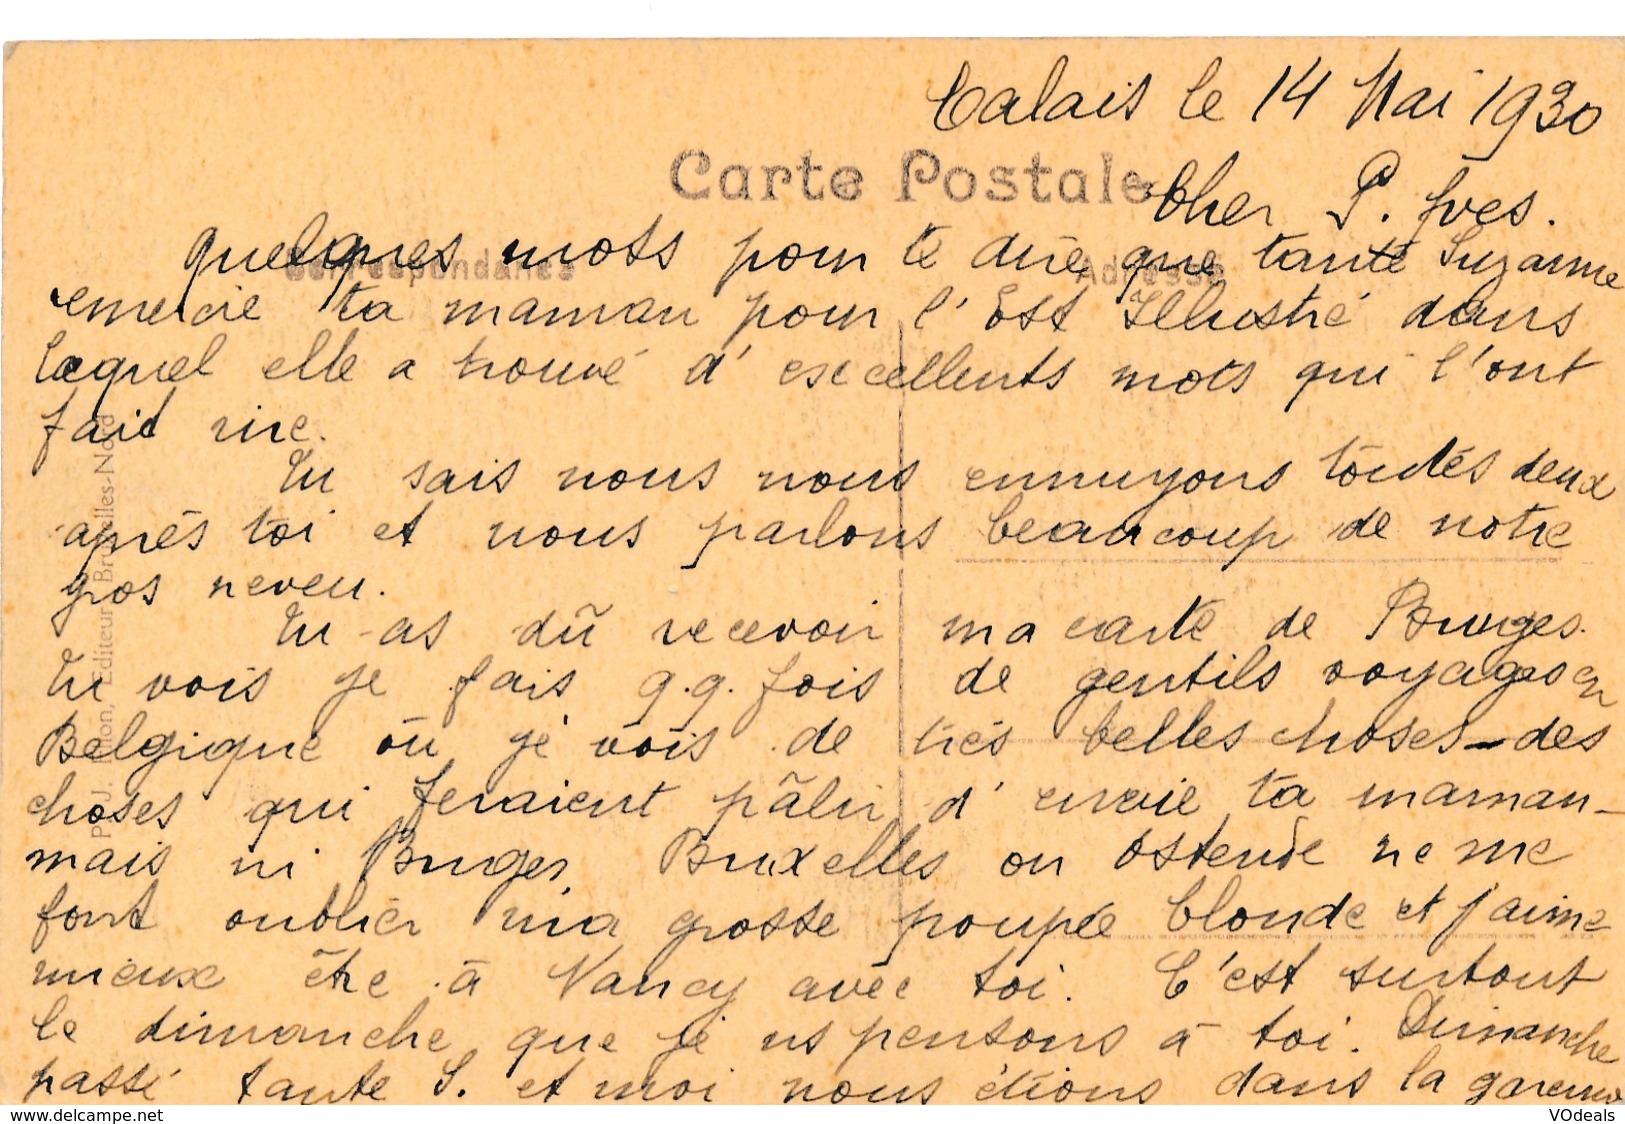 Calais le 14 Mai 1930
Carte Postale
Cher P. Yves.
Correspondance
Adresse
quelques mots pour te dire que tante Suzanne
remercie ta maman pour l'Est Illustré dans
lequel elle a trouvé d'excellents mots qui l'ont
fait rire.
Tu sais nous nous ennuyons toutes deux
après toi et nous parlons beaucoup de notre
gros neveu.
Tu as dû recevoir ma carte de Bruges.
Tu vois je fais q.q. fois de gentils voyages en
Belgique où je vois de très belles choses - des
choses qui feraient pâlir d'envie ta maman -
mais ni Bruges, Bruxelles ou Ostende ne me
font oublier ma grosse poupée blonde et j'aime
mieux être à Nancy avec toi. C'est surtout
le dimanche que je ns pensons à toi. Dimanche
passé tante S. et moi nous étions dans la
Editeur Bruxelles-Nord
www.delcampe.net
VOdeals